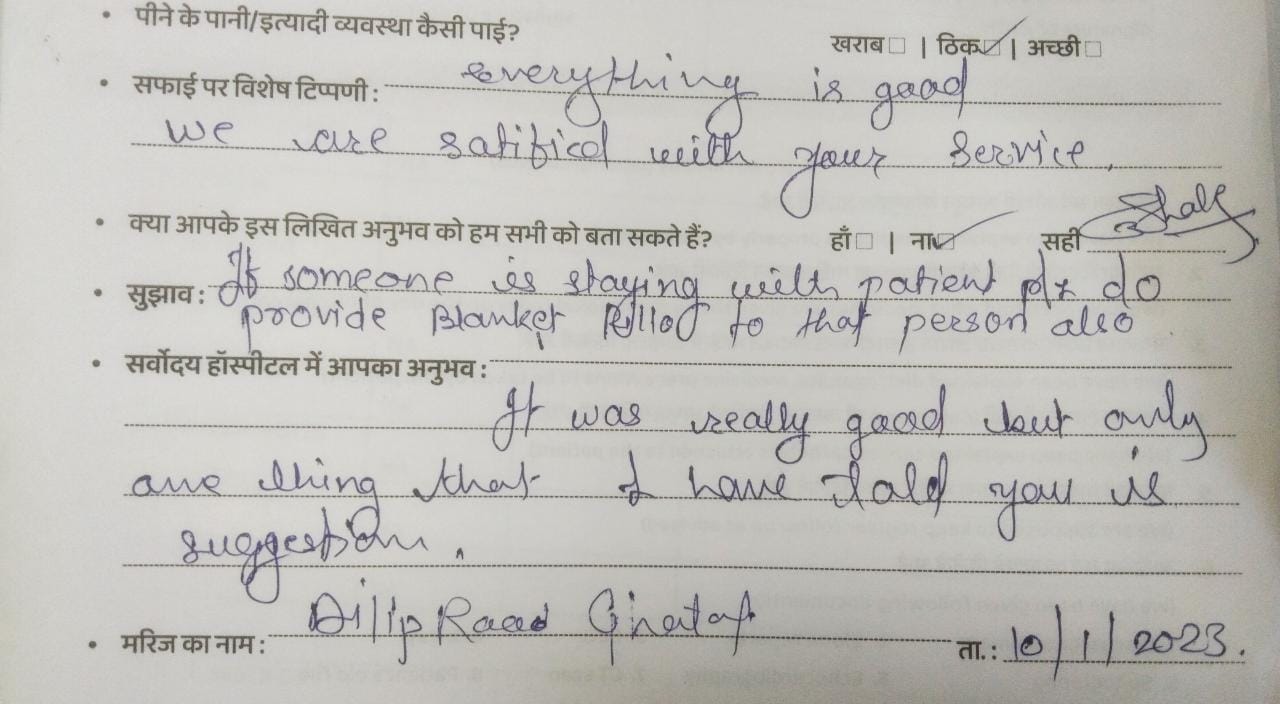 • पीने के पानी/इत्यादी व्यवस्था कैसी पाई? खराब □ | ठिक ☑ | अच्छी □
• सफाई पर विशेष टिप्पणी : everything is good
we are satified with your service.
• क्या आपके इस लिखित अनुभव को हम सभी को बता सकते हैं? हाँ □ | ना ☑ सही
• सुझाव : If someone is staying with patient plz do
provide Blanket Pillow to that person also.
• सर्वोदय हॉस्पीटल में आपका अनुभव :
It was really good but only
one thing that I have told you is
suggestion.
• मरिज का नाम : Dilip
ता.: 10/1/2023.